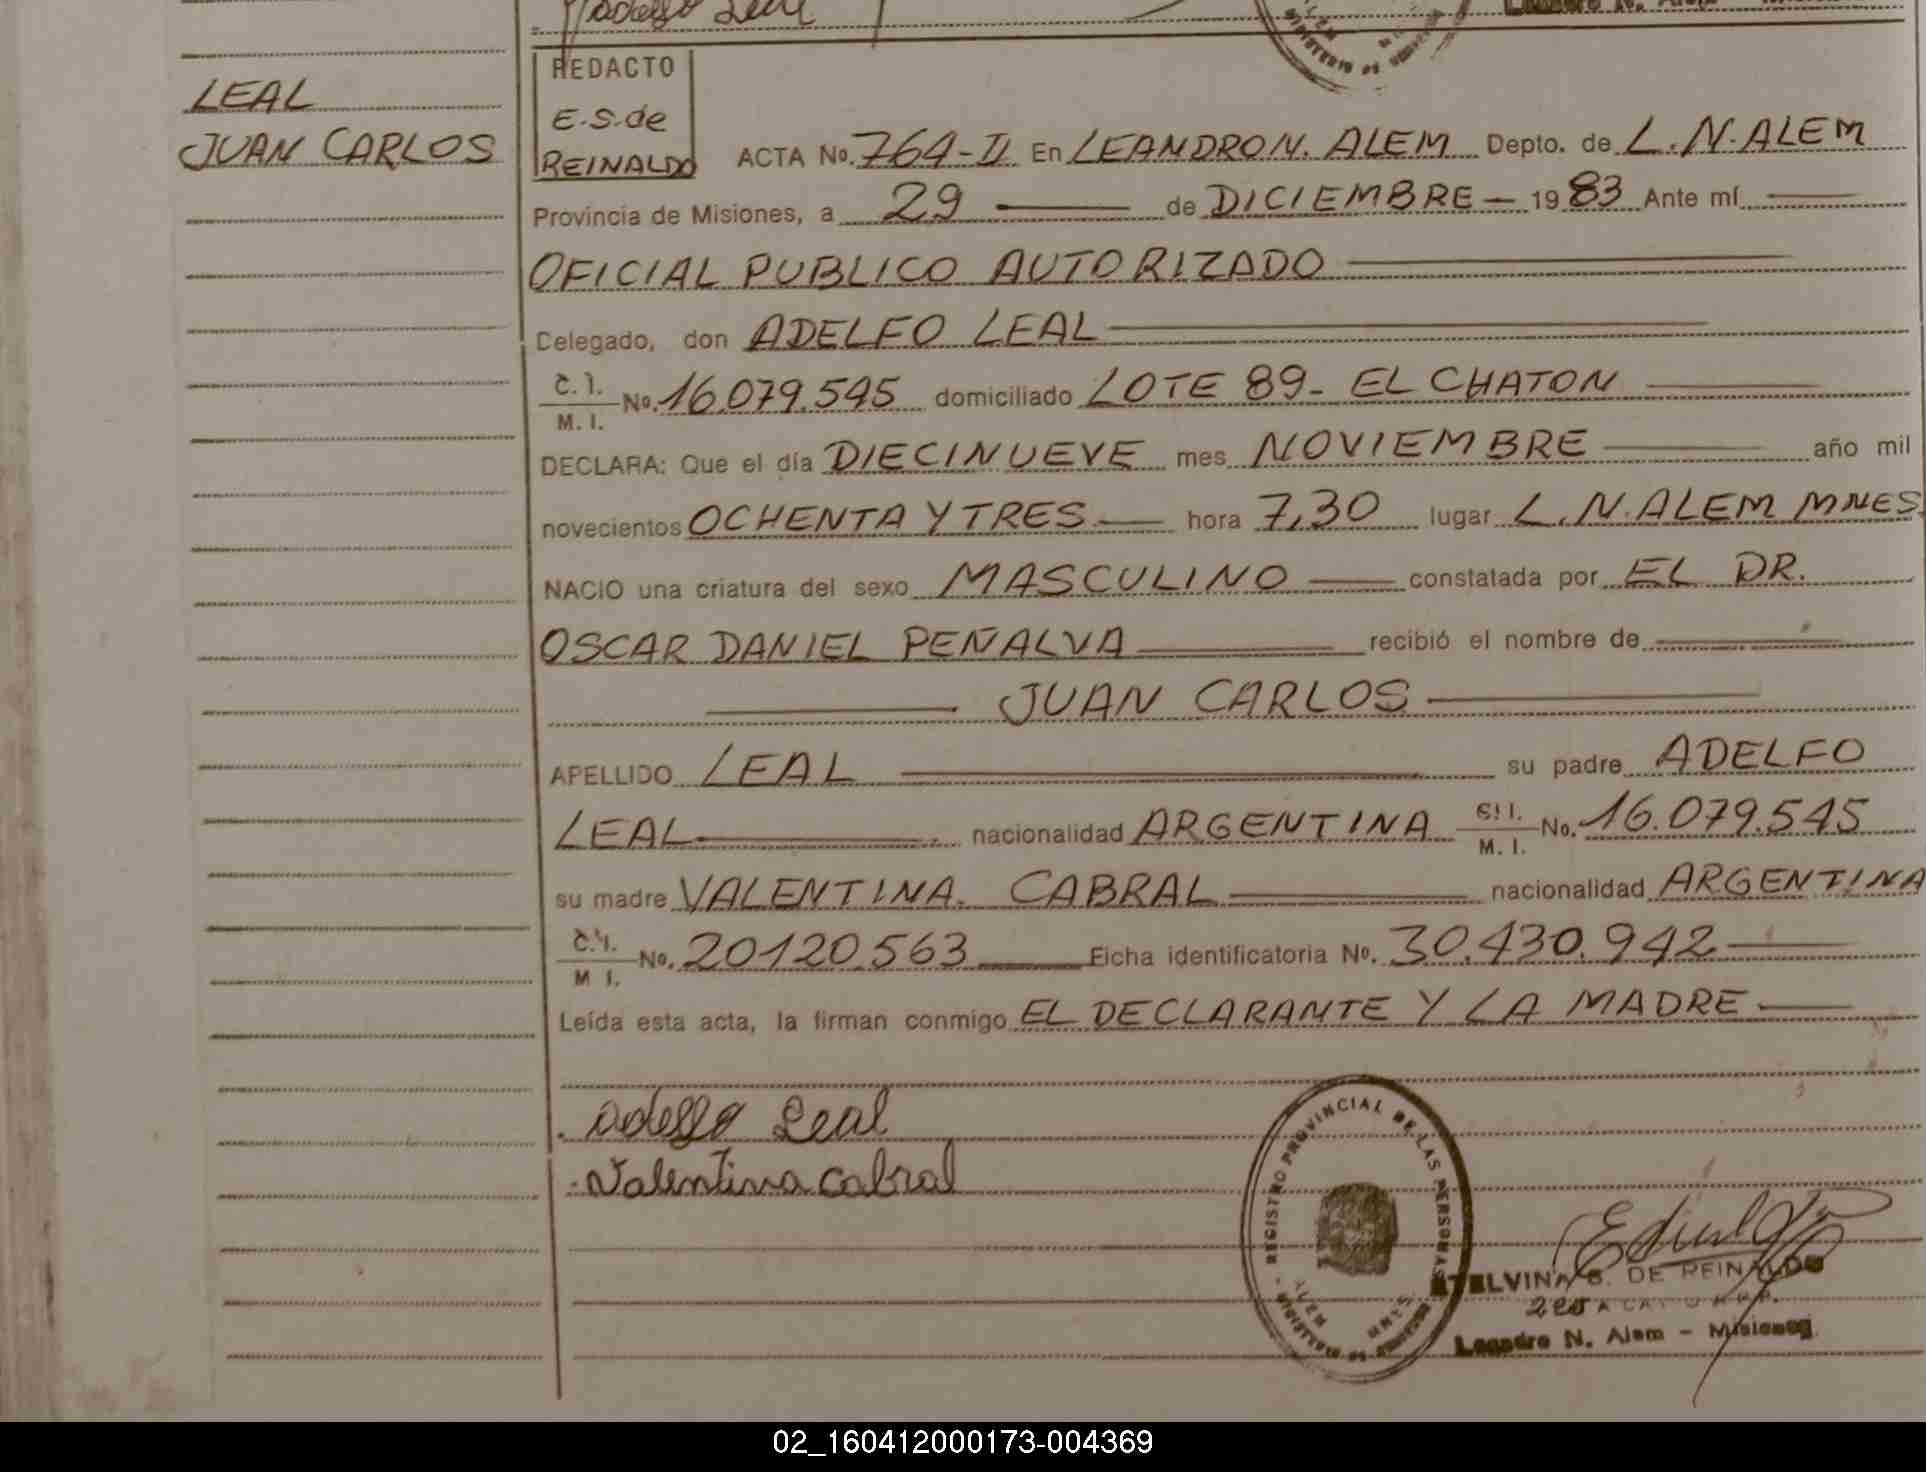 Adelfo Leal
LEAL
JUAN CARLOS
REDACTO
E.S.de
REINALDO
ACTA No. 764-II En LEANDRO N. ALEM Depto. de L.N.ALEM
Provincia de Misiones, a 29 de DICIEMBRE 1983 Ante mí
OFICIAL PUBLICO AUTORIZADO
Celegado, don ADELFO LEAL
C.I. M.I. No. 16.079.545 domiciliado LOTE 89- EL CHATON
DECLARA: Que el día DIECINUEVE mes NOVIEMBRE año mil
novecientos OCHENTA Y TRES hora 7,30 lugar L.N.ALEM MNES.
NACIO una criatura del sexo MASCULINO constatada por EL DR.
OSCAR DANIEL PEÑALVA recibió el nombre de
JUAN CARLOS
APELLIDO LEAL su padre ADELFO
LEAL nacionalidad ARGENTINA C.I. M.I. No. 16.079.545
su madre VALENTINA. CABRAL nacionalidad ARGENTINA
C.I. M I. No. 20120.563 Ficha identificatoria No. 30.430.942
Leída esta acta, la firman conmigo EL DECLARANTE Y LA MADRE
Adelfo Leal
Valentina Cabral
REGISTRO PROVINCIAL DE LAS PERSONAS
ALEM MNES
ETELVINA S. DE REINALDO
Leandro N. Alem - Misiones
02_160412000173-004369